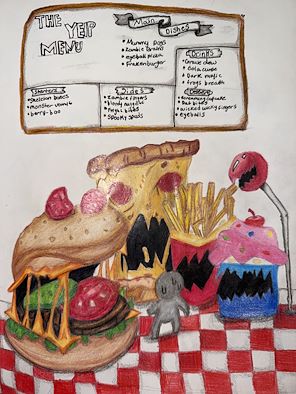 THE YEIP
MENU
Main
Dishes
• Mummy Dogs
• Zombie Brains
• eyeball pizza
• Frankenburger
Drinks
• Grave dew
• Cola curse
• Dark magic
• frogs breath
Starters
• Skeleton bones
• monster vomit
• berry-boo
Sides
• Zombie fingers
• bloody
• bites
• Spooky spuds
• Screaming cupcake
• Bat bites
• wicked fingers
• eyeballs